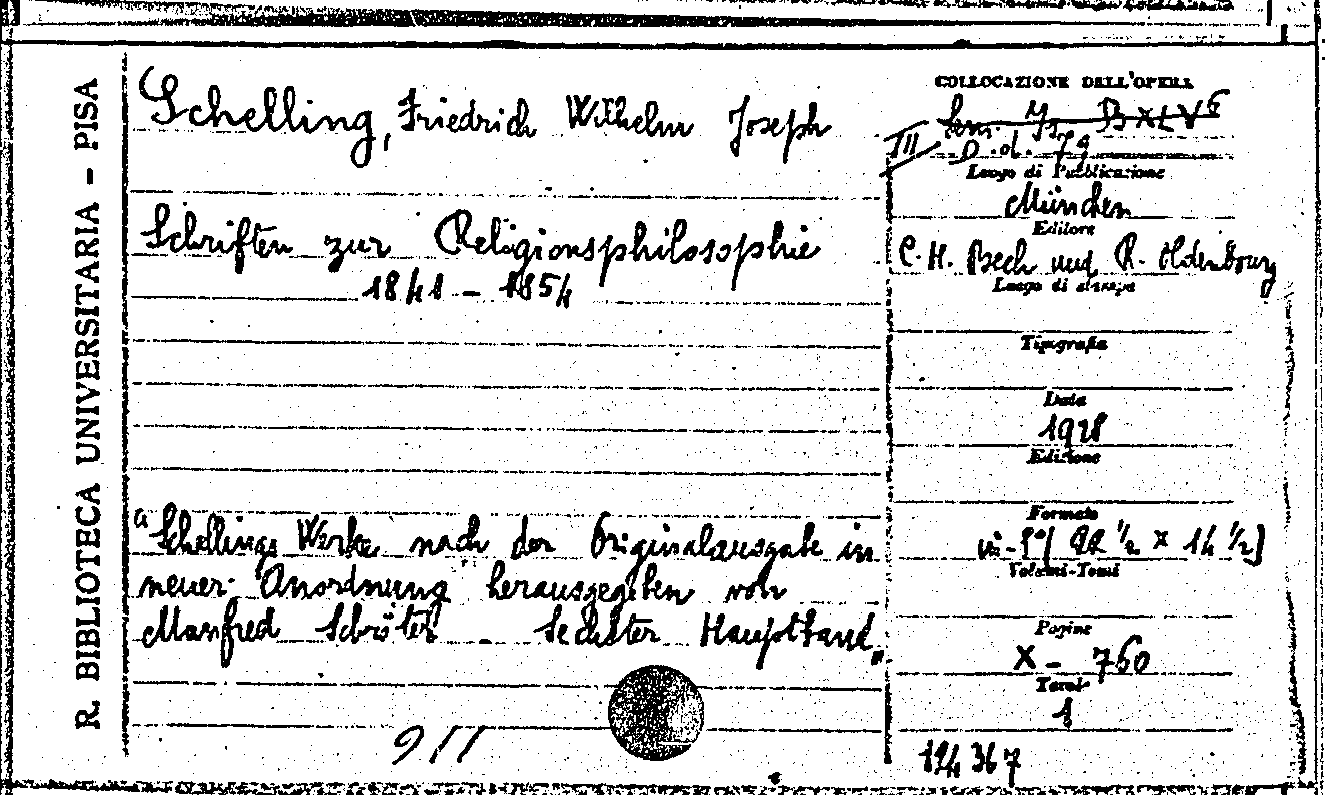 R. BIBLIOTECA UNIVERSITARIA - PISA
Schelling, Friedrich Wilhelm Joseph
Schriften zur Religionsphilosophie
1841 - 1854
"Schellings Werke nach der Originalausgabe in
neuer Anordnung herausgegeben von
Manfred Schröter - Sechster Hauptband"
911
COLLOCAZIONE DELL'OPERA
III
D. d. 79
Luogo di Pubblicazione
München
Editore
C. H. Beck und R. Oldenbourg
Luogo di stampa
Tipografia
Data
1928
Edizione
Formato
in-8°( 22 1/2 x 14 1/2)
Volumi-Tomi
Pagine
X - 760
Tomi
1
194367